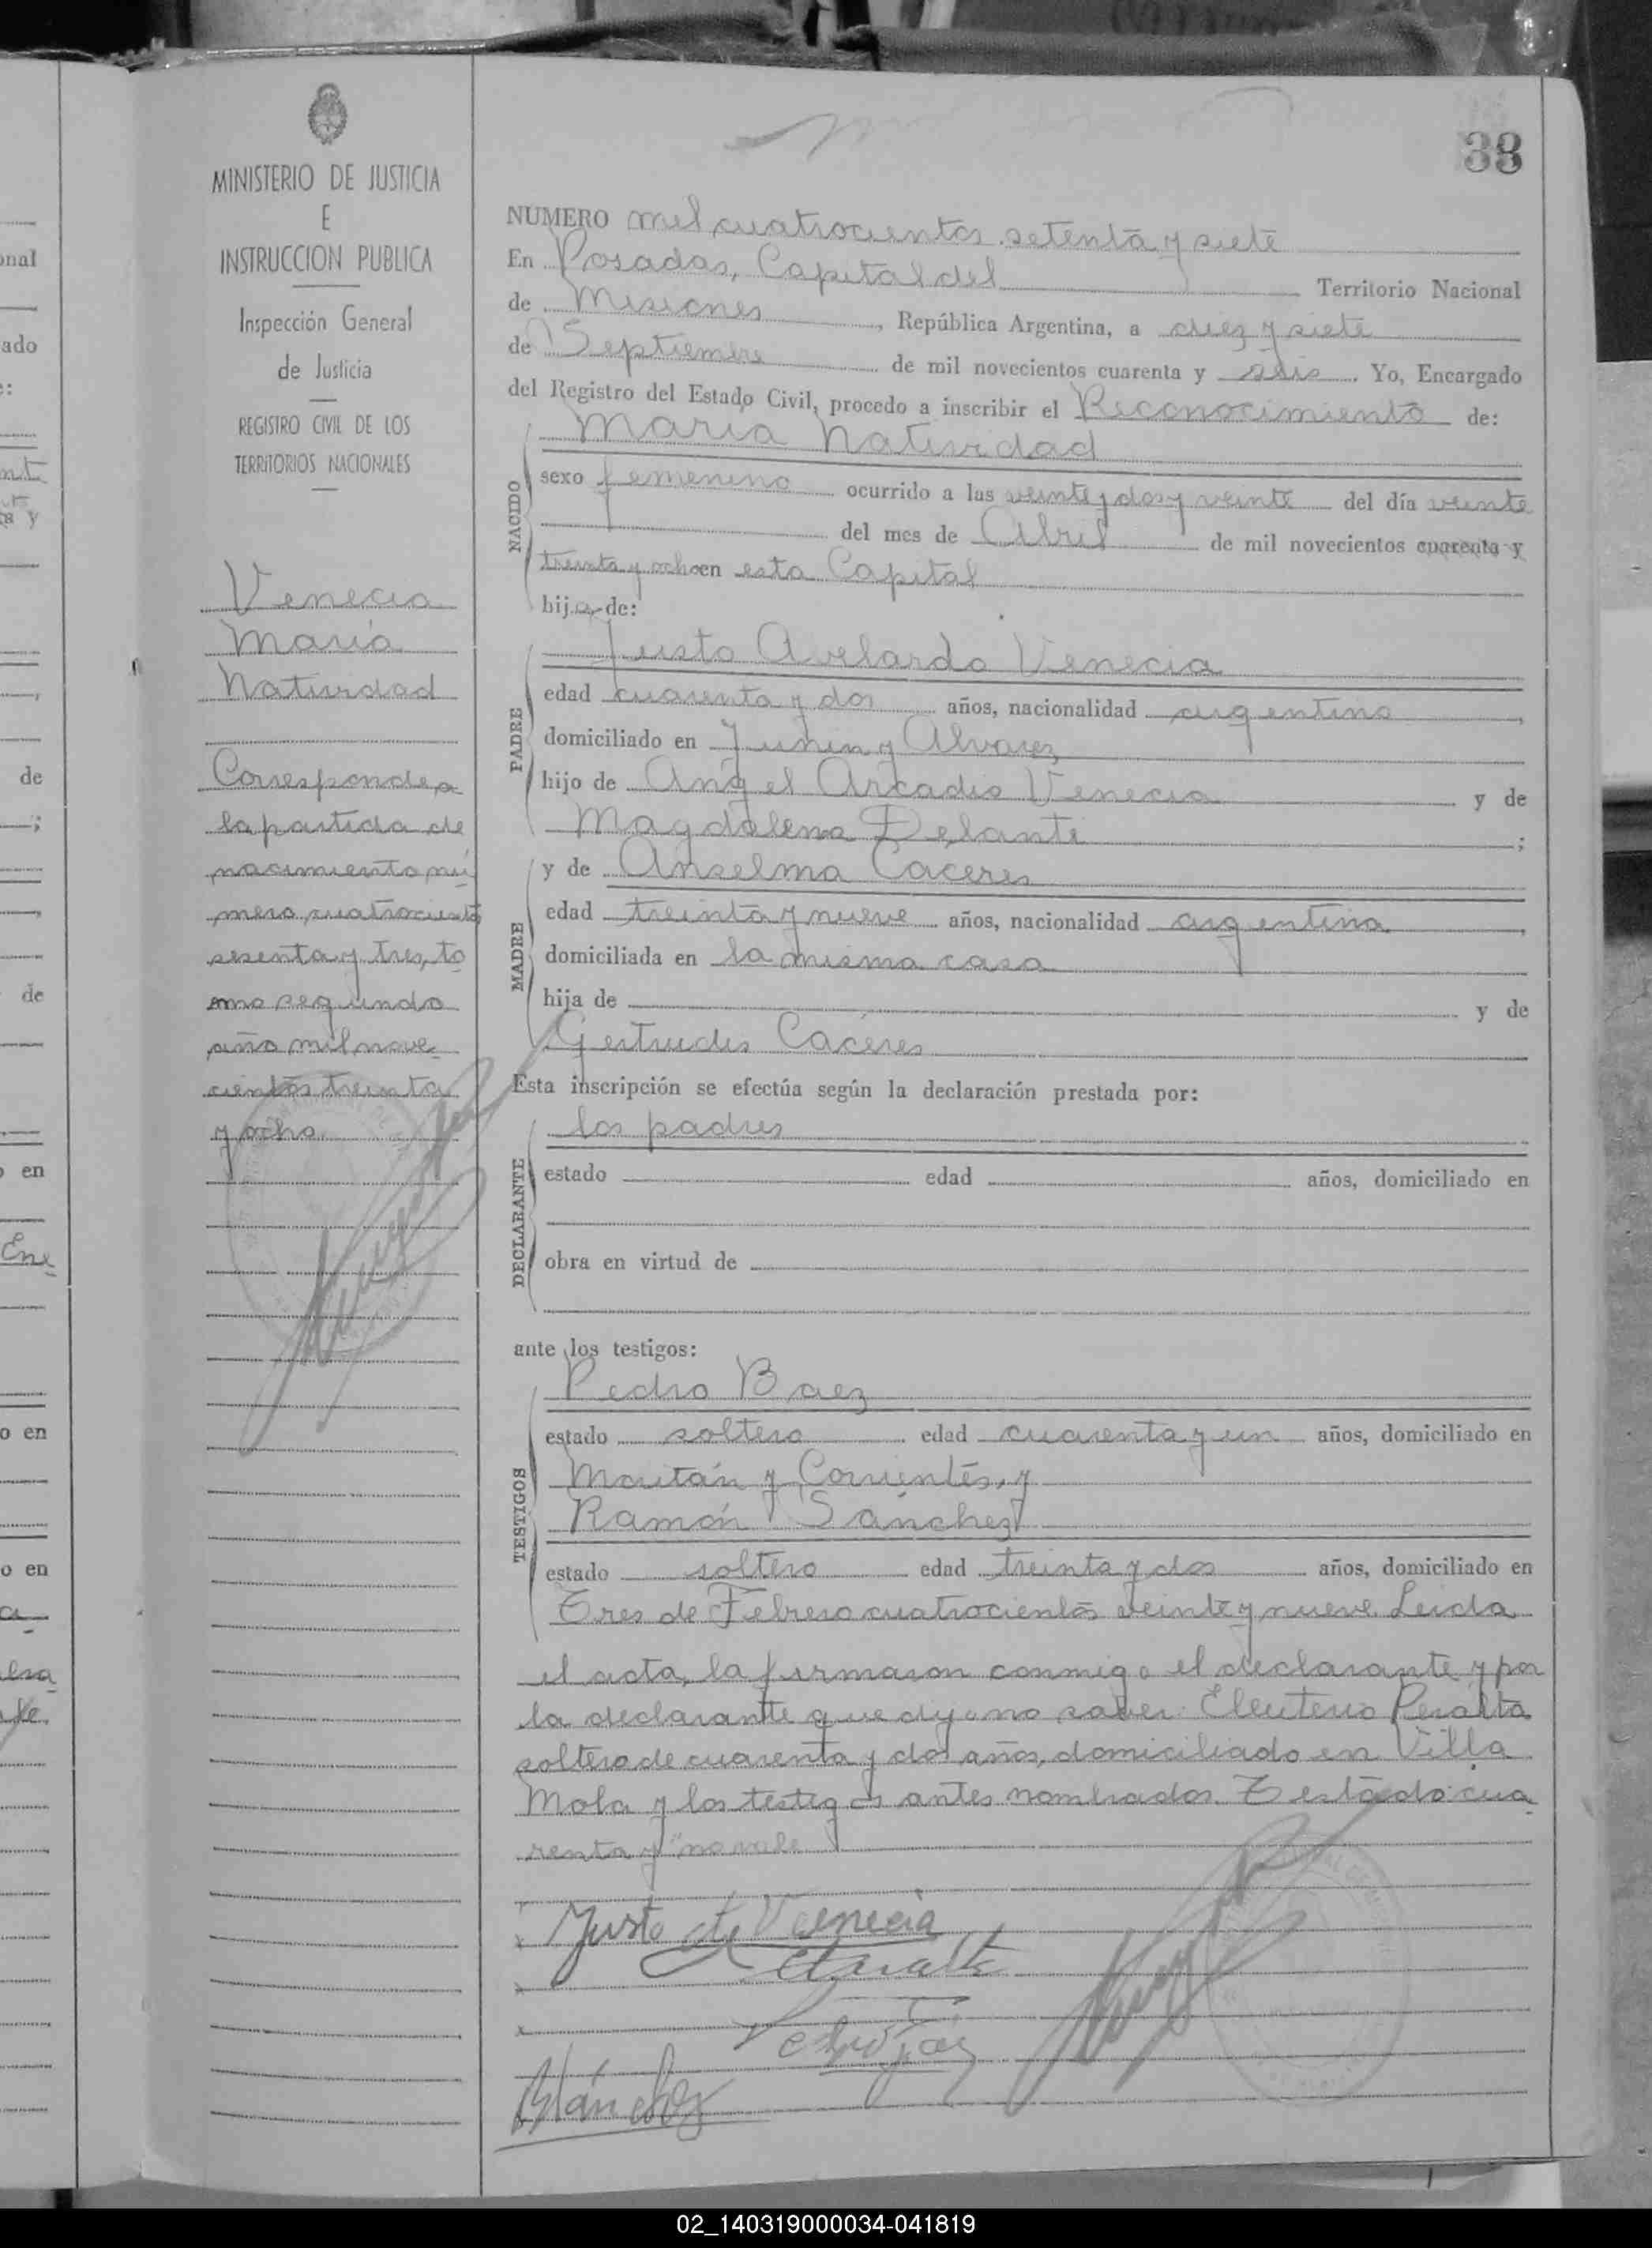 33
MINISTERIO DE JUSTICIA
E
INSTRUCCION PUBLICA
Inspección General
de Justicia
REGISTRO CIVIL DE LOS
TERRITORIOS NACIONALES
Venecia
Maria
Natividad
Corresponde a
la partida de
nacimiento nú
mero cuatrocientos
sesenta y tres, to
mo segundo
año mil nove
cientos treinta
y ocho.
NUMERO mil cuatrocientos setenta y siete
En Posadas, Capital del Territorio Nacional
de Misiones, República Argentina, a diez y siete
de Septiembre de mil novecientos cuarenta y seis. Yo, Encargado
del Registro del Estado Civil, procedo a inscribir el Reconocimiento de:
NACIDO
Maria Natividad
sexo femenino ocurrido a las veinte y dos y veinte del día veinte
del mes de Abril de mil novecientos cuarenta y
treinta y ocho en esta Capital
hija de:
PADRE
Justo Avelardo Venecia
edad cuarenta y dos años, nacionalidad argentino,
domiciliado en Junin y Alvarez
hijo de Angel Arcadio Venecia y de
Magdalena Delanti;
MADRE
y de Anselma Caceres
edad treinta y nueve años, nacionalidad argentina,
domiciliada en la misma casa
hija de y de
Gertrudis Cáceres
Esta inscripción se efectúa según la declaración prestada por:
DECLARANTE
los padres
estado edad años, domiciliado en
obra en virtud de
ante los testigos:
TESTIGOS
Pedro Baez
estado soltero edad cuarenta y un años, domiciliado en
Moritán y Corrientes, y
Ramón Sánchez
estado soltero edad treinta y dos años, domiciliado en
Tres de Febrero cuatrocientos veinte y nueve. Leida
el acta, la firmaron conmigo el declarante y por
la declarante que dijo no saber: Eleuterio Peralta
soltero de cuarenta y dos años, domiciliado en Villa
Mola y los testigos antes nombrados. Testado: cua
renta y "no vale
Justo A Venecia
EPeralta
RSánchez
02_140319000034-041819